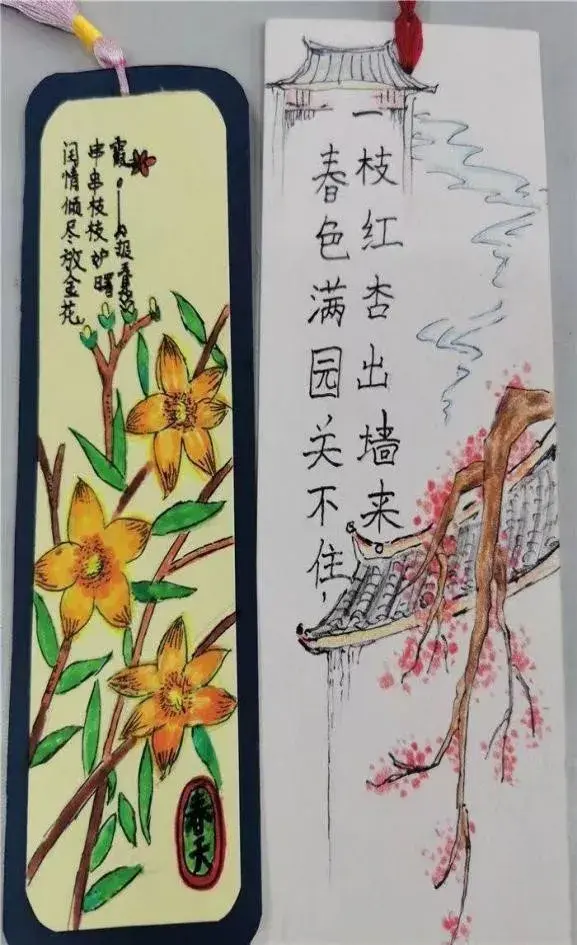 情倾尽放金花
串串枝枝妒曙
霞。——报春
春天
春色满园关不住，
一枝红杏出墙来。